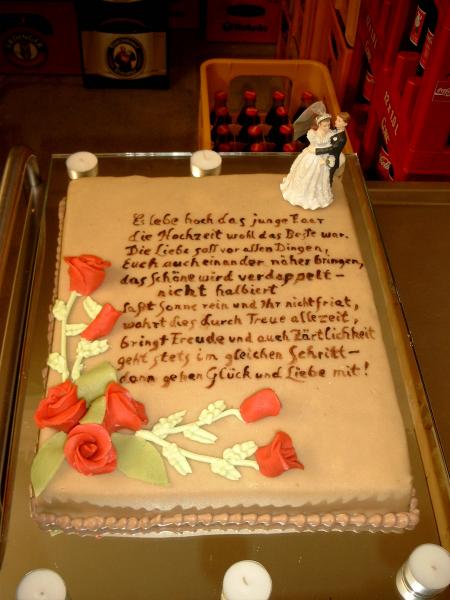 Es lebe hoch das junge Paar
die Hochzeit wohl das Beste war.
Die Liebe soll vor allen Dingen,
Euch auch einander näher bringen,
das Schöne wird verdoppelt –
nicht halbiert
laßt Sonne rein und Ihr nicht friat,
wahrt dies durch Treue allezeit,
bringt Freude und auch Zärtlichkeit
geht stets im gleichen Schritt –
dann gehen Glück und Liebe mit!